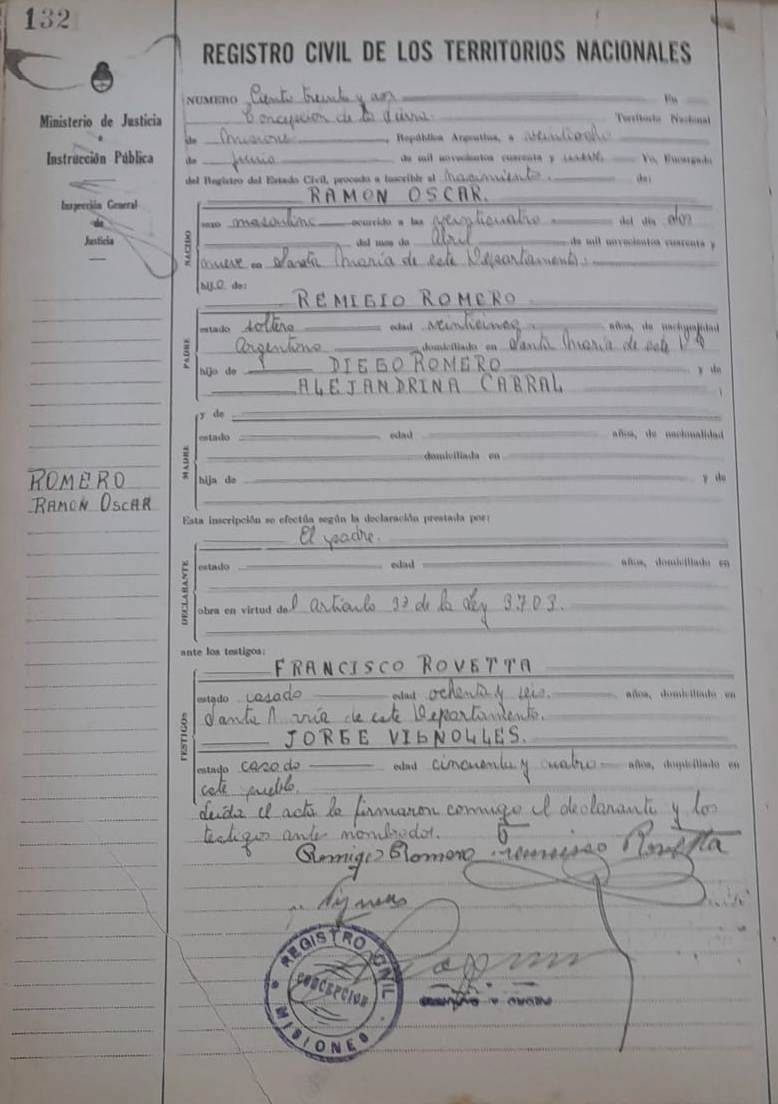 132
REGISTRO CIVIL DE LOS TERRITORIOS NACIONALES
Ministerio de Justicia
e
Instrucción Pública
Inspección General
de
Justicia
NUMERO Ciento treinta y dos En
Concepcion de la Sierra Territorio Nacional
de Misiones, República Argentina, a veintiocho
de junio de mil novecientos cuarenta y Yo, Encargado
del Registro del Estado Civil, procedo a inscribir el nacimiento. de:
RAMON OSCAR.
NACIDO
sexo masculino ocurrido a las veinticuatro del día dos
del mes de Abril de mil novecientos cuarenta y
nueve en Santa María de este Departamento.
hijo de:
REMIGIO ROMERO
PADRE
estado soltero edad veinticinco años, de nacionalidad
Argentino domiciliado en Santa María de este
hijo de DIEGO ROMERO y de
ALEJANDRINA CABRAL
MADRE
y de
estado edad años, de nacionalidad
domiciliada en
hija de y de
ROMERO
RAMON OSCAR
Esta inscripción se efectúa según la declaración prestada por:
El padre.
DECLARANTE
estado edad años, domiciliado en
obra en virtud del artículo de la Ley 3703.
ante los testigos:
FRANCISCO ROVETTA
TESTIGOS
estado casado edad ochenta y seis. años, domiciliado en
Santa María de este Departamento.
JORGE VIGNOLLES.
estado casado edad cincuenta y cuatro años, domiciliado en
este pueblo.
Leída el acta la firmaron conmigo el declarante y los
testigos antes nombrados.
Romero Rovetta
REGISTRO CIVIL
CONCEPCION
MISIONES